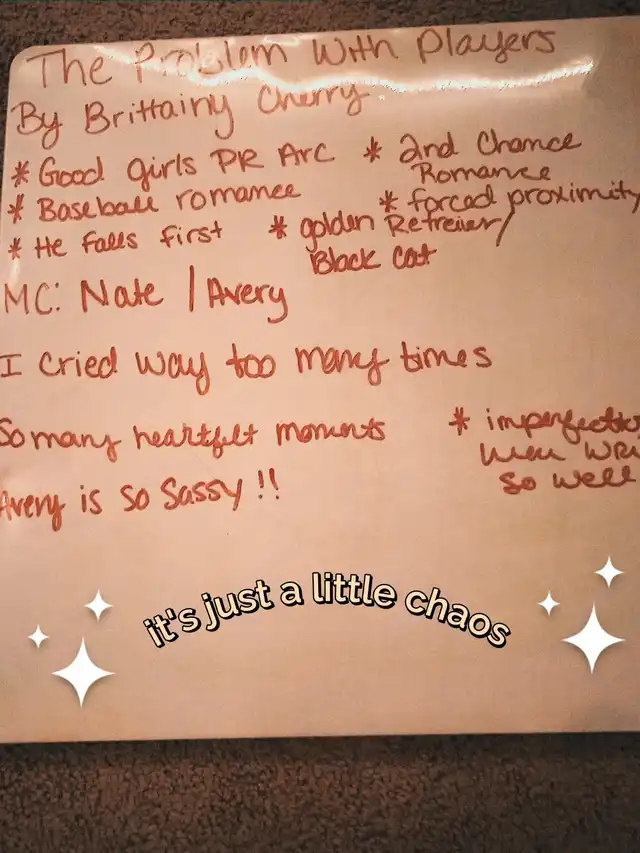 The Problem With Players
By Brittainy Cherry
* Good girls PR Arc
* Baseball romance
* He falls first
* 2nd Chance
Romance
* forced proximity
* golden Retreiver/
Black cat
MC: Nate / Avery
I cried way too many times
So many heartfelt moments
* imperfectio
were wri
so well
Avery is so Sassy !!
it's just a little chaos